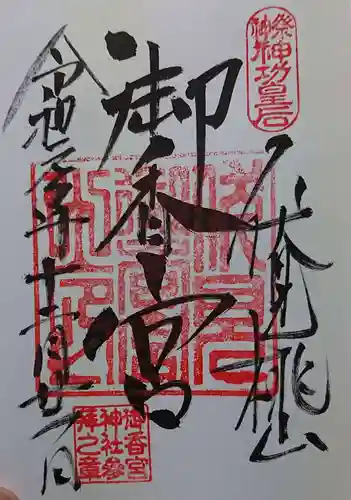 祭神
御神功皇后
伏見桃山
御香宮
令和元年十一月廿六日
御香宮
神社參
拜之章